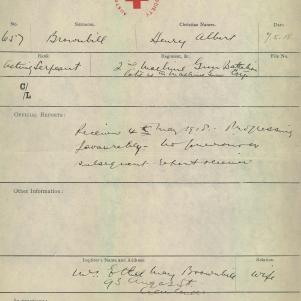 No. Surname. Christian Names. Date
657 Brownbill Henry Albert 9.5.18
Rank. Regiment, &c. File No.
Acting Sergeant 2nd Machine Gun Battalion
late 22 Machine Gun Coy
C/
/L
OFFICIAL REPORTS:
May 1918. Progressing
favourably. No previous or
subsequent report received
OTHER INFORMATION:
Inquirer's Name and Address Relation
Mrs. Ethel May Brownbill Wife
93 Angas St